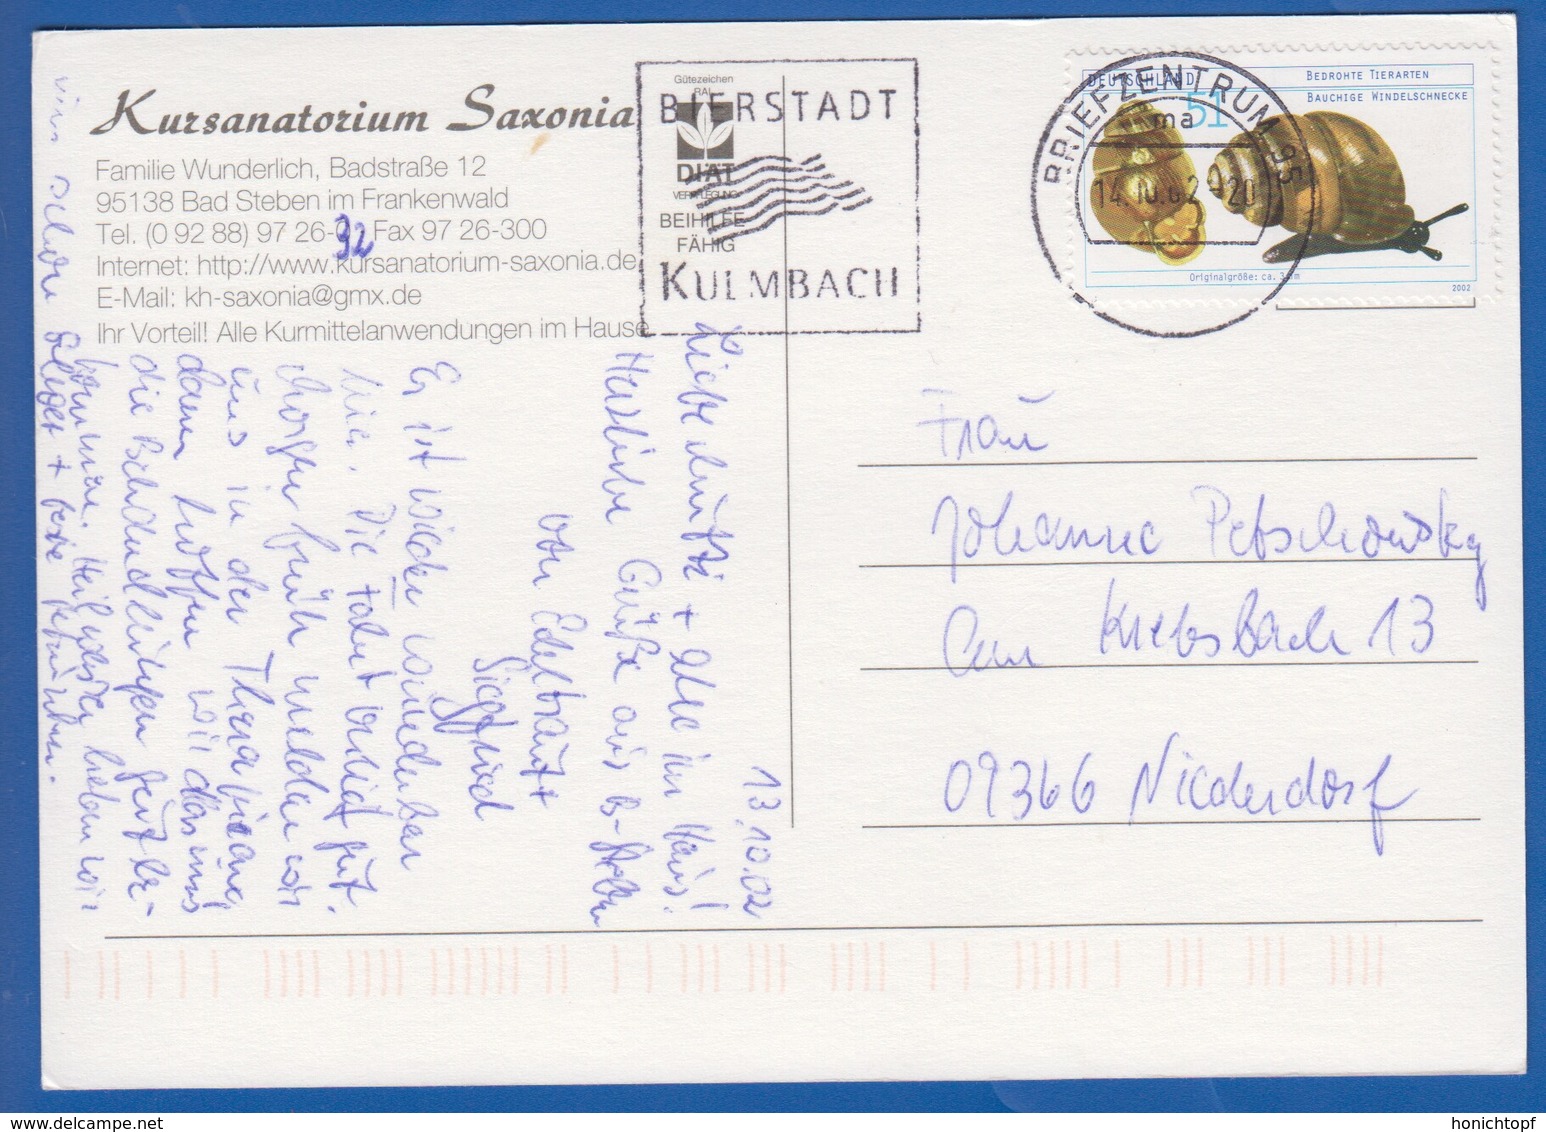 Kursanatorium Saxonia
Familie Wunderlich, Badstraße 12
95138 Bad Steben im Frankenwald
Tel. (0 92 88) 97 26- Fax 97 26-300
92
Internet: http://www.kursanatorium-saxonia.de
E-Mail: kh-saxonia@gmx.de
Ihr Vorteil! Alle Kurmittelanwendungen im Hause
Gütezeichen
RAL
DIÄT
VERPFLEGUNG
BEIHILFE
FÄHIG
BIERSTADT
KULMBACH
BRIEFZENTRUM 95
ma
14.10.02-20
DEUTSCHLAND
51
BEDROHTE TIERARTEN
BAUCHIGE WINDELSCHNECKE
Originalgröße: ca. 3 mm
2002
13.10.02
Liebe + alle im Haus!
Herzliche Grüße aus B-Steben
von Edeltraut +
Siegfried
Es ist wieder wunderbar
hier. Die Fahrt verlief gut.
Morgen früh melden wir
uns in der Therapie und
dann hoffen wir das uns
die Behandlungen gut be-
kommen. Heilwasser haben wir
uns schon
geholt + getrunken.
Frau
Johanne Petschowsky
Am Krebsbach 13
09366 Niederdorf
www.delcampe.net
honichtopf